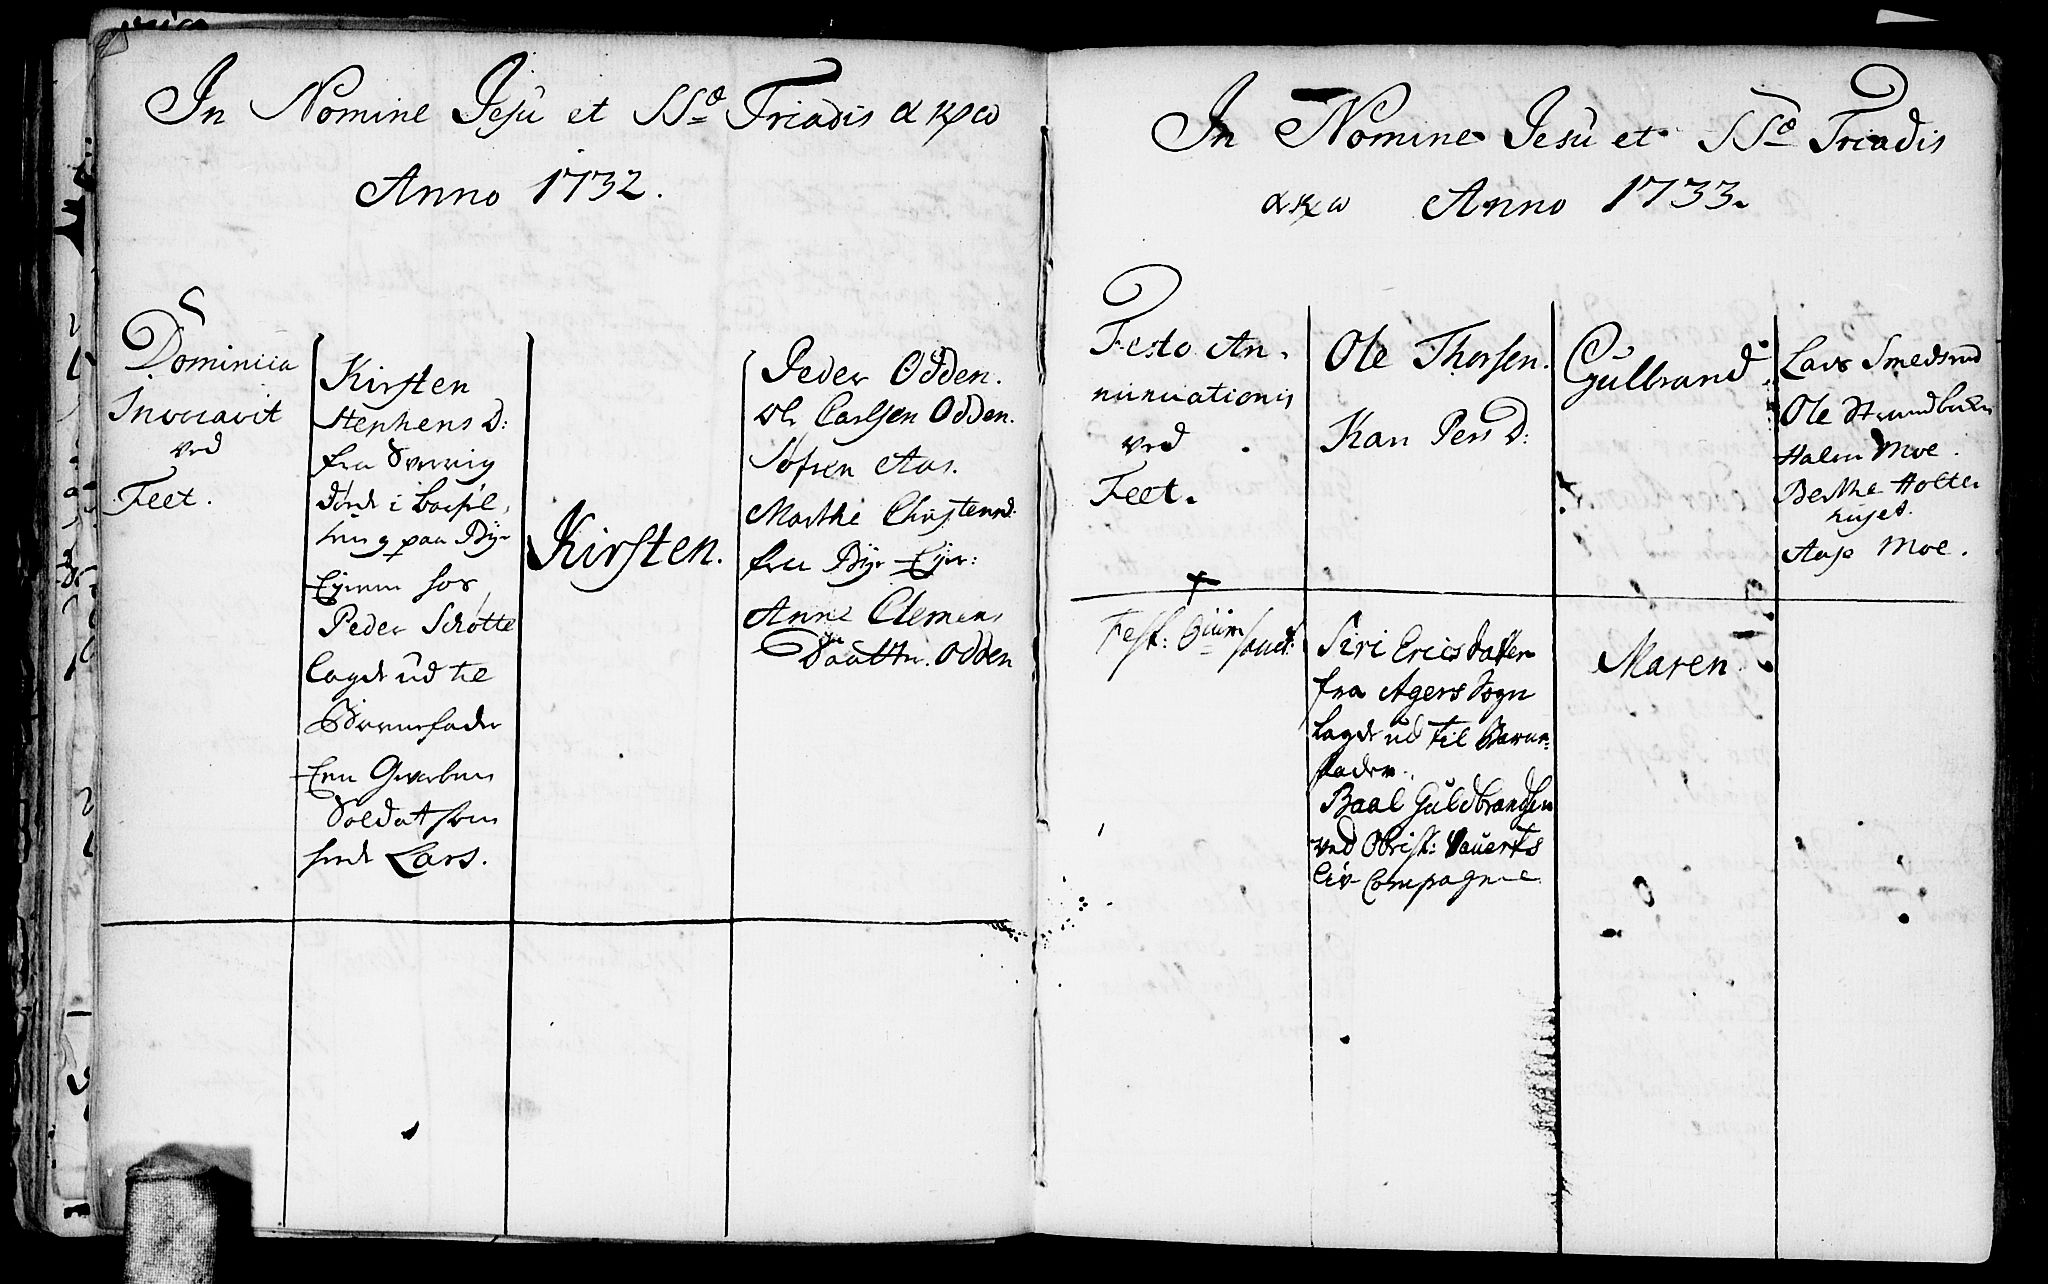 In Nomine Jesu et SSæ Triadis α ω
Anno 1732.
Dominica
Invocavit
ved
Feet.
Kirsten
Stephens D:
fra Sverrig
paa Bÿe
Eÿeren hos
Peder Schøtte
lagde ud til
Barnefader
Een Gevorben
Soldat som
heed Lars.
Kirsten.
Peder Odden.
Ole Carlsen Odden.
Søfren Aas.
Marthe Christensd:
fra Bÿe Eÿer:
Anne Clemens
Daatter. Odden
In Nomine Jesu et SSæ Triadis
α ω Anno 1733.
Festo An-
nunciationis
ved
Feet.
Ole Thorsen.
Kari Pers D:
Gulbrand
Lars Smedsrud
Ole
Halvor Moe.
Berthe Holter
huset.
Aase Moe.
Fest: Oium Sanct:
Siri Ericsdatter
fra Agers Sogn
lagde ud til Barne-
fader.
Baal Guldbrandsen
ved Obrist:
Liv Compagnie
Maren